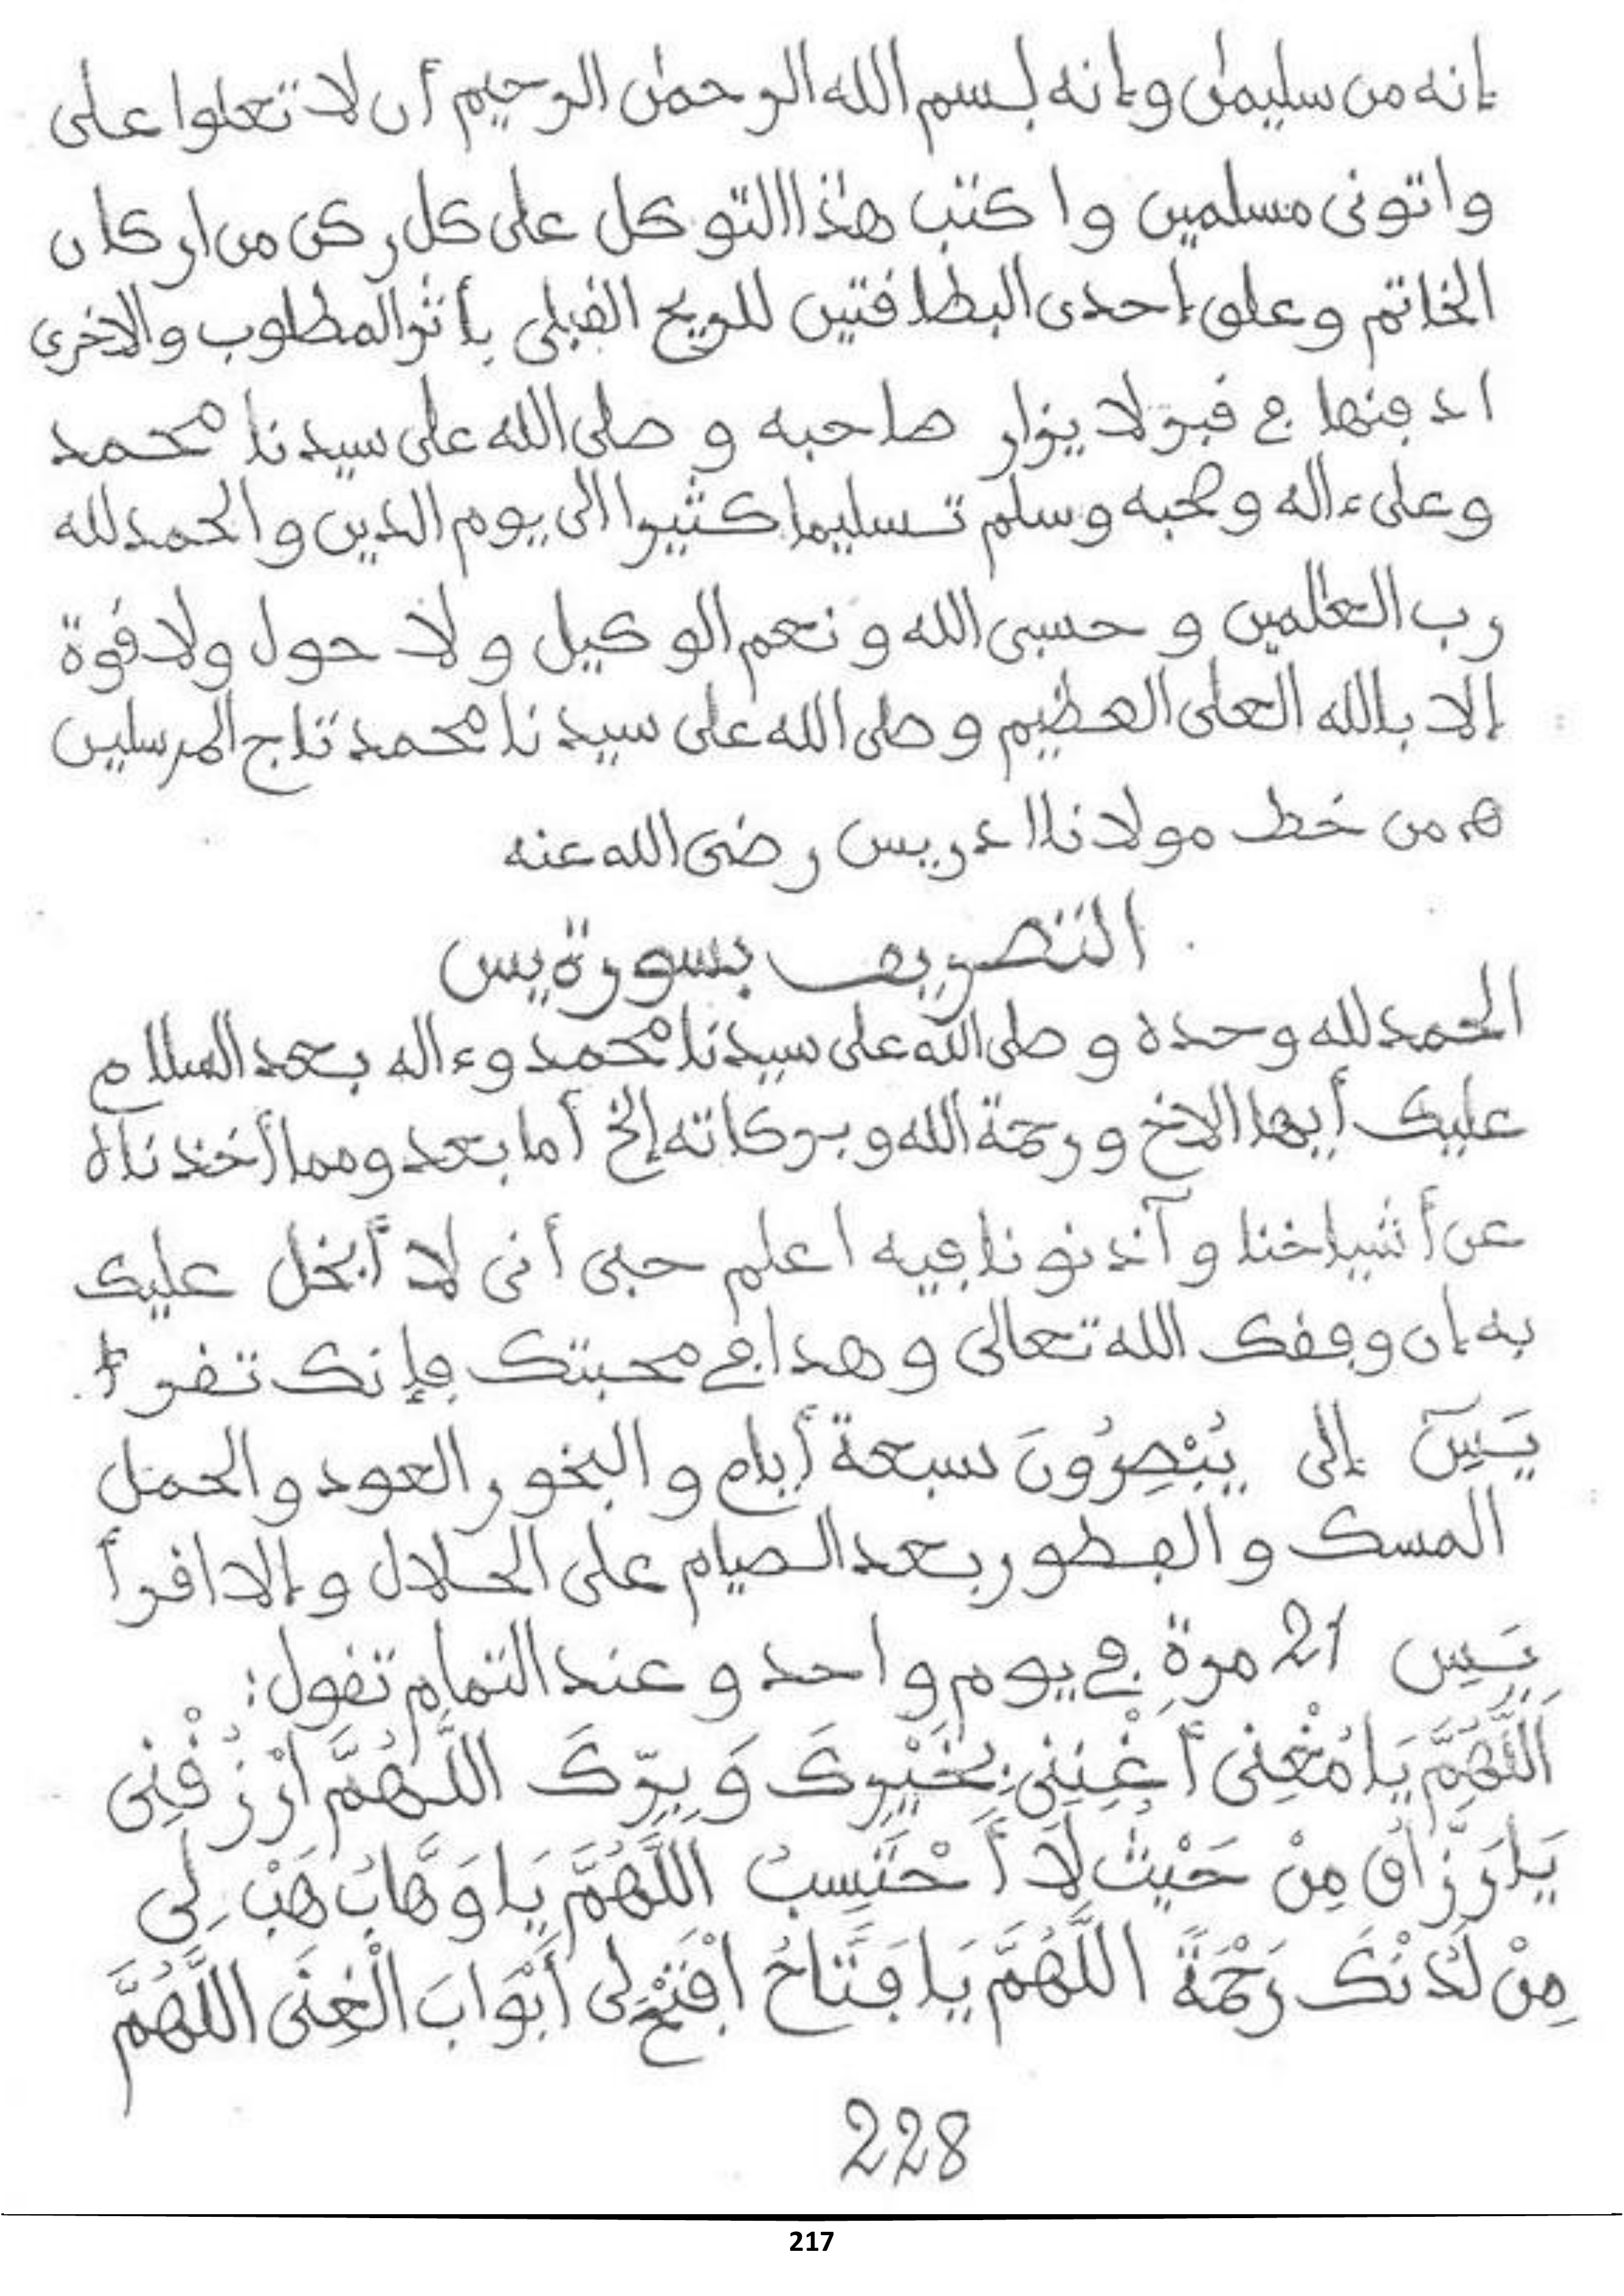 إنه من سليمٰن وإنه بسم الله الرحمٰن الرحيم أن لا تعلوا على
واتونى مسلمين واكتب هذا التوكل على كل ركن من اركان
الخاتم وعلق إحدى البطاقتين للريح القبلى بأثر المطلوب والاخرى
ادفنها في قبر لا يزار صاحبه وصلى الله على سيدنا محمد
وعلى ءاله وصحبه وسلم تسليما كثيرا الى يوم الدين والحمد لله
رب العٰلمين وحسبى الله ونعم الوكيل ولا حول ولا قوة
إلا بالله العلى العظيم وصلى الله على سيدنا محمد تاج المرسلين
ﻫ من خط مولانا ادريس رضى الله عنه
التصريف بسورة يس
الحمد لله وحده وصلى الله على سيدنا محمد وءاله بعد السلام
عليك أيها الاخ ورحمة الله وبركاته إلخ أما بعد ومما أخذناه
عن أشياخنا وآذنونا فيه اعلم حبى أنى لا أبخل عليك
به إن وفقك الله تعالى وهدا في محبتك فإنك تقرأ
يَسِٓ إلى يُبْصِرُونَ سبعة أيام والبخور العود والحمل
المسك والفطور بعد الصيام على الحلال وإلا اقرأ
يَسِ 21 مرة في يوم واحد وعند التمام تقول:
اَللَّهُمَّ يَا مُغْنِى أَغْنِنِى بِخَيْرِكَ وَبِرِّكَ اللَّهُمَّ ارْزُقْنِى
يَا رَزَّاقُ مِنْ حَيْثُ لَا أَحْتَسِبُ اللَّهُمَّ يَا وَهَّابُ هَبْ لِى
مِنْ لَدُنْكَ رَحْمَةً اللَّهُمَّ يَا فَتَّاحُ افْتَحْ لِى أَبْوَابَ الْغِنَى اللَّهُمَّ
228
217